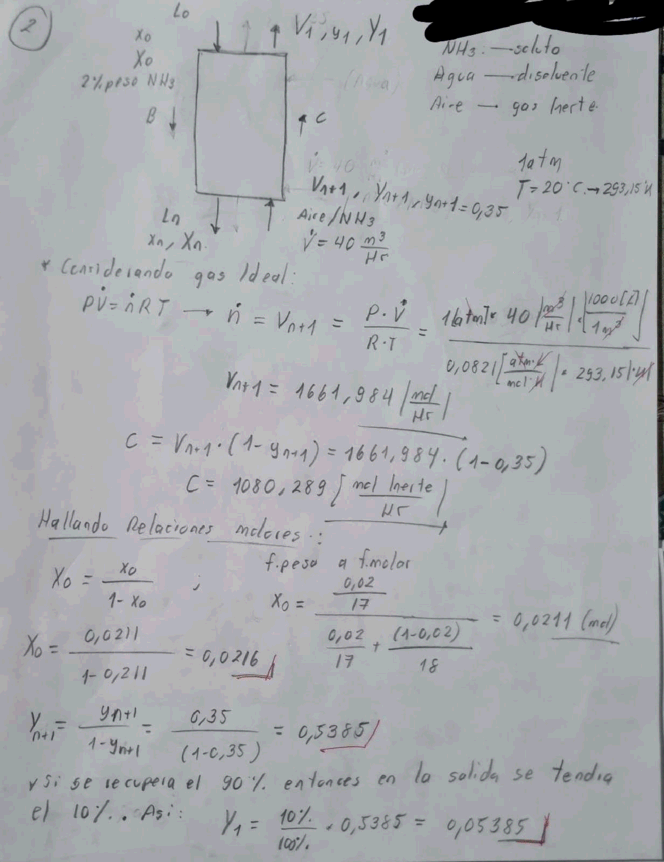 2
L₀
V₁, y₁, Y₁
x₀
X₀
2% peso NH₃
B
C
Ln
xn, Xn.
Vn+1, Yn+1, yn+1 = 0,35
Aire/NH₃
V̇ = 40 m³/Hr
NH₃. — soluto
Agua — disolvente
Aire — gas Inerte.
1atm
T = 20°C. → 293,15 K
* Considerando gas Ideal:
PV̇ = ṅRT → ṅ = Vn+1 = P·V̇ / R·T = 1[atm] * 40 [m³/Hr] * [1000[L] / 1m³] / 0,0821 [atm·L / mol·K] * 293,15[K]
Vn+1 = 1661,984 [mol/Hr]
C = Vn+1 · (1 - yn+1) = 1661,984 · (1 - 0,35)
C = 1080,289 [mol Inerte / Hr]
Hallando Relaciones molares.:
f.peso a f.molar
X₀ = x₀ / 1 - x₀ ; x₀ = 0,02/17 / 0,02/17 + (1-0,02)/18 = 0,0211 (mol)
X₀ = 0,0211 / 1 - 0,211 = 0,0216
Yn+1 = yn+1 / 1 - yn+1 = 0,35 / (1-0,35) = 0,5385
* Si se recupera el 90% entonces en la salida se tendria
el 10%.. Asi: Y₁ = 10% / 100% * 0,5385 = 0,05385